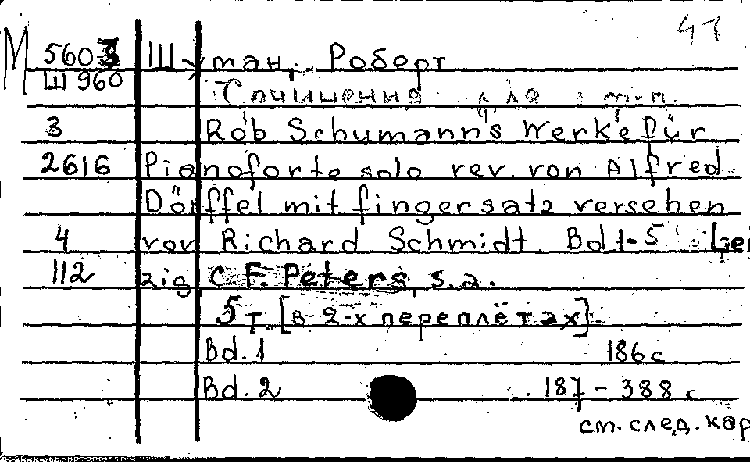 41
М 5603 Шуман, Роберт
Ш960 Сочинения для
3 Rob Schumann's Werke für
2616 Pianoforte solo rev. von Alfred
Dörffel mit fingersatz versehen
4 vov Richard Schmidt. Bd 1-5 Lei
112 zig, C. F. Peters, s.a.
5 т. [в 2-х переплётах].
Bd. 1 186 с
Bd. 2 187-388 с
см. след. кар